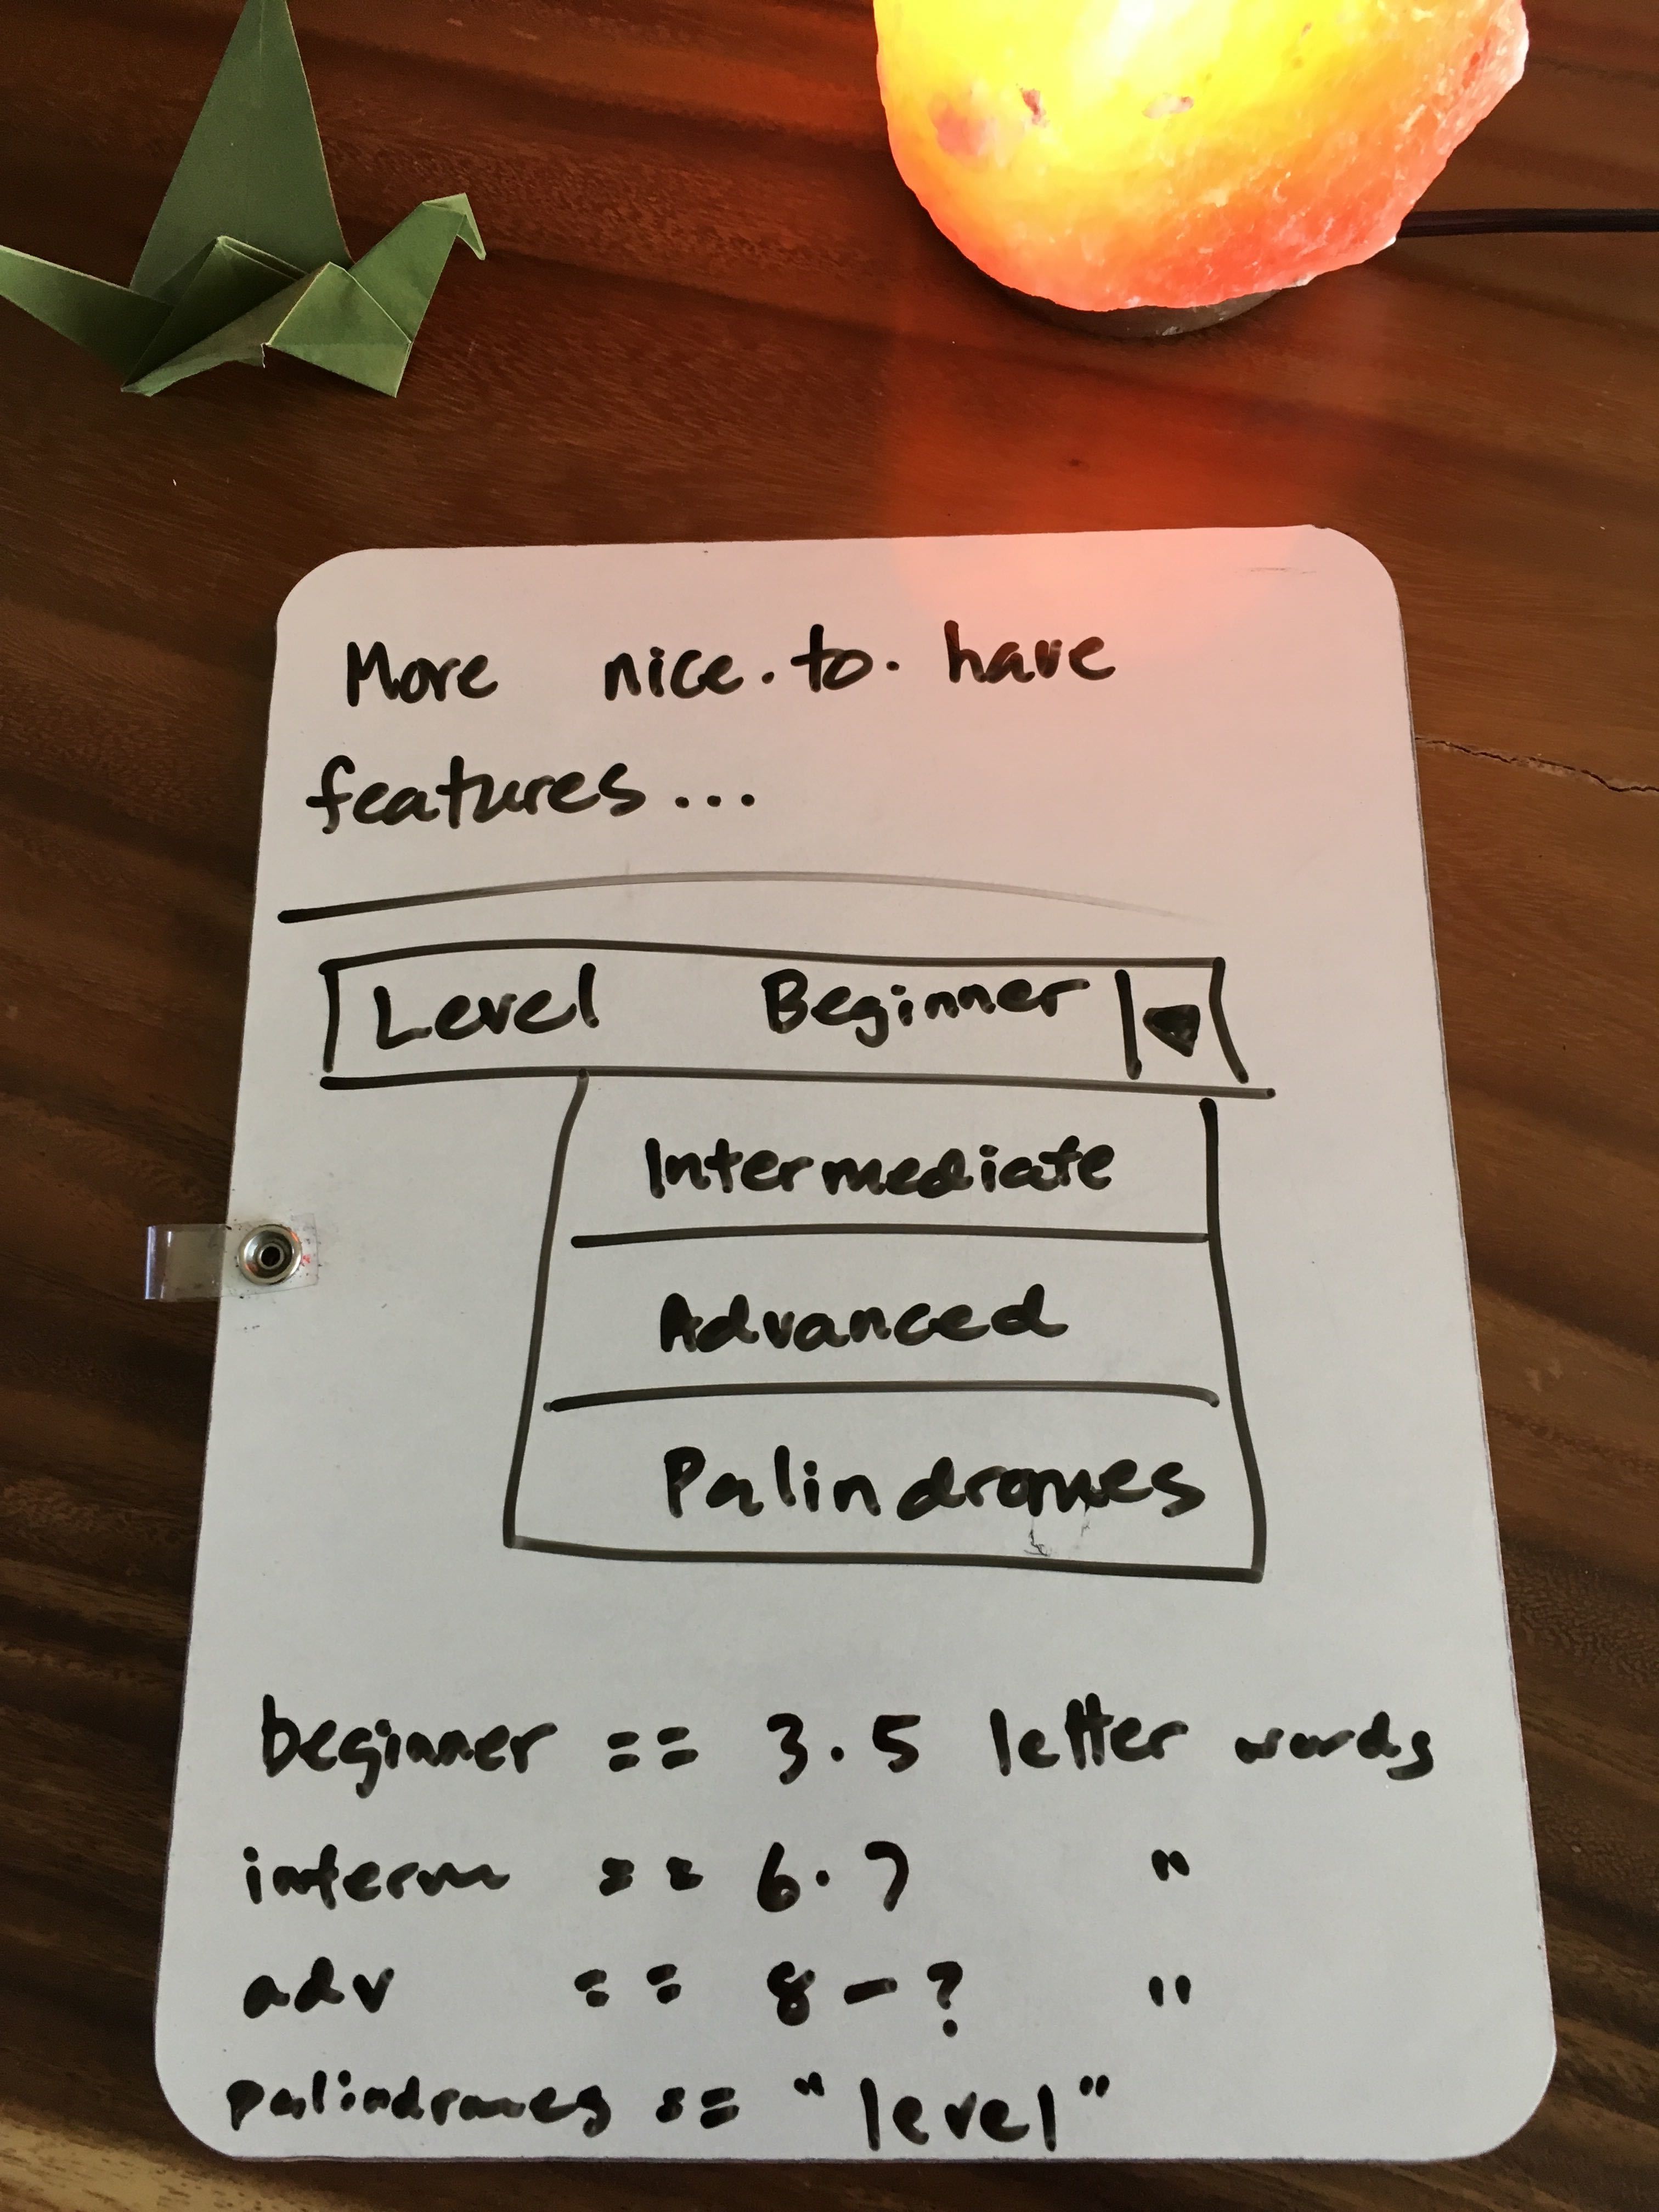 More nice-to-have
features...
Level Beginner
Intermediate
Advanced
Palindromes
beginner == 3-5 letter words
interm == 6-7 "
adv == 8-? "
palindromes == "level"